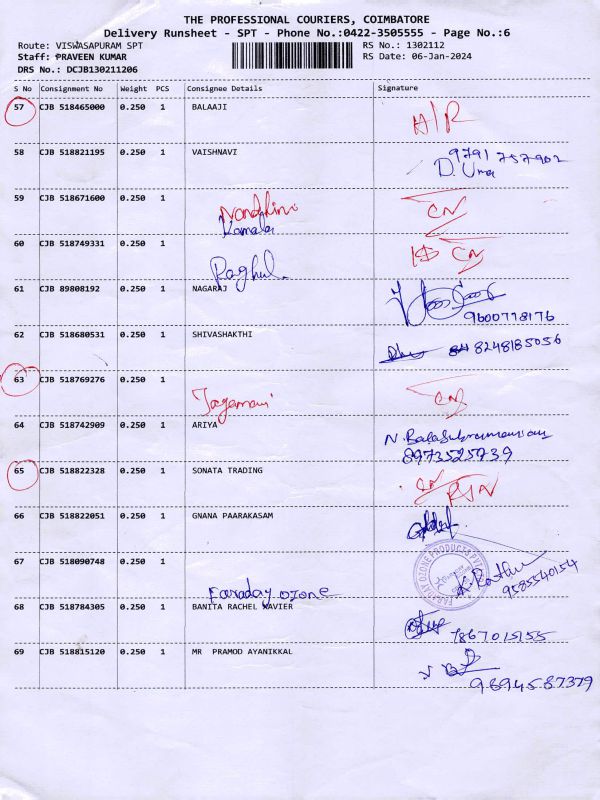 THE PROFESSIONAL COURIERS, COIMBATORE
Delivery Runsheet - SPT - Phone No.:0422-3505555 - Page No.:6
Route: VISWASAPURAM SPT RS No.: 1302112
Staff: PRAVEEN KUMAR RS Date: 06-Jan-2024
DRS No.: DCJB130211206
S No Consignment No Weight PCS Consignee Details Signature
57 CJB 518465000 0.250 1 BALAAJI
A/R
58 CJB 518821195 0.250 1 VAISHNAVI 9791757902
D. Uma
59 CJB 518671600 0.250 1
Nandhini CN
Kamala
60 CJB 518749331 0.250 1 CN
Raghul
61 CJB 89808192 0.250 1 NAGARAJ
9600778176
62 CJB 518680531 0.250 1 SHIVASHAKTHI 8248185056
63 CJB 518769276 0.250 1
Jagamani CN
64 CJB 518742909 0.250 1 ARIYA N. Balasubramaniam
8973525739
65 CJB 518822328 0.250 1 SONATA TRADING CN
RSN
66 CJB 518822051 0.250 1 GNANA PAARAKASAM
67 CJB 518090748 0.250 1
FARADAY OZONE PRODUCTS PVT
Faraday Ozone K. Rathi
9585540154
68 CJB 518784305 0.250 1 BANITA RACHEL XAVIER
7867015155
69 CJB 518815120 0.250 1 MR PRAMOD AYANIKKAL
9894587379